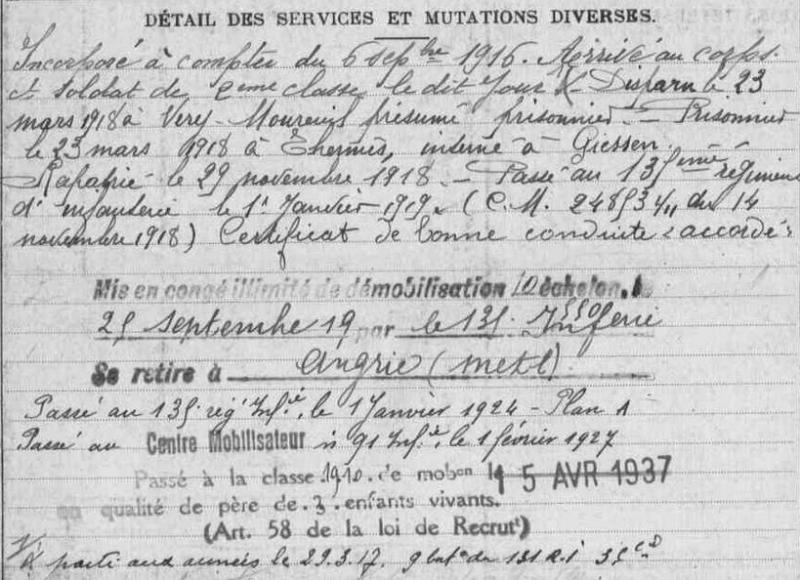 DÉTAIL DES SERVICES ET MUTATIONS DIVERSES.
Incorporé à compter du 6 septbre 1916. Arrivé au corps
et soldat de 2ème classe le dit jour X Disparu le 23
mars 1918 à Véry-Moureuil présumé prisonnier. — Prisonnier
le 23 mars 1918 à interné à Giessen.
Rapatrié le 29 novembre 1918 — Passé au 135ème régiment
d'infanterie le 1r Janvier 1919. (C.M. 24853 4/11 du 14
novembre 1918) Certificat de bonne conduite "accordé"
Mis en congé illimité de démobilisation 10 échelon, le
25 septembre 19 par le 135. Inferie
Se retire à Angrie (met L)
Passé au 135e règt Infie, le 1 Janvier 1924 - Plan A
Passé au Centre Mobilisateur n 91 Infie le 1 février 1927
Passé à la classe 1910. de mobon le 15 AVR 1937
en qualité de père de .3. enfants vivants.
(Art. 58 de la loi de Recrutt)
parti aux armées le 29.3.17. 9 bat du 131 R.I